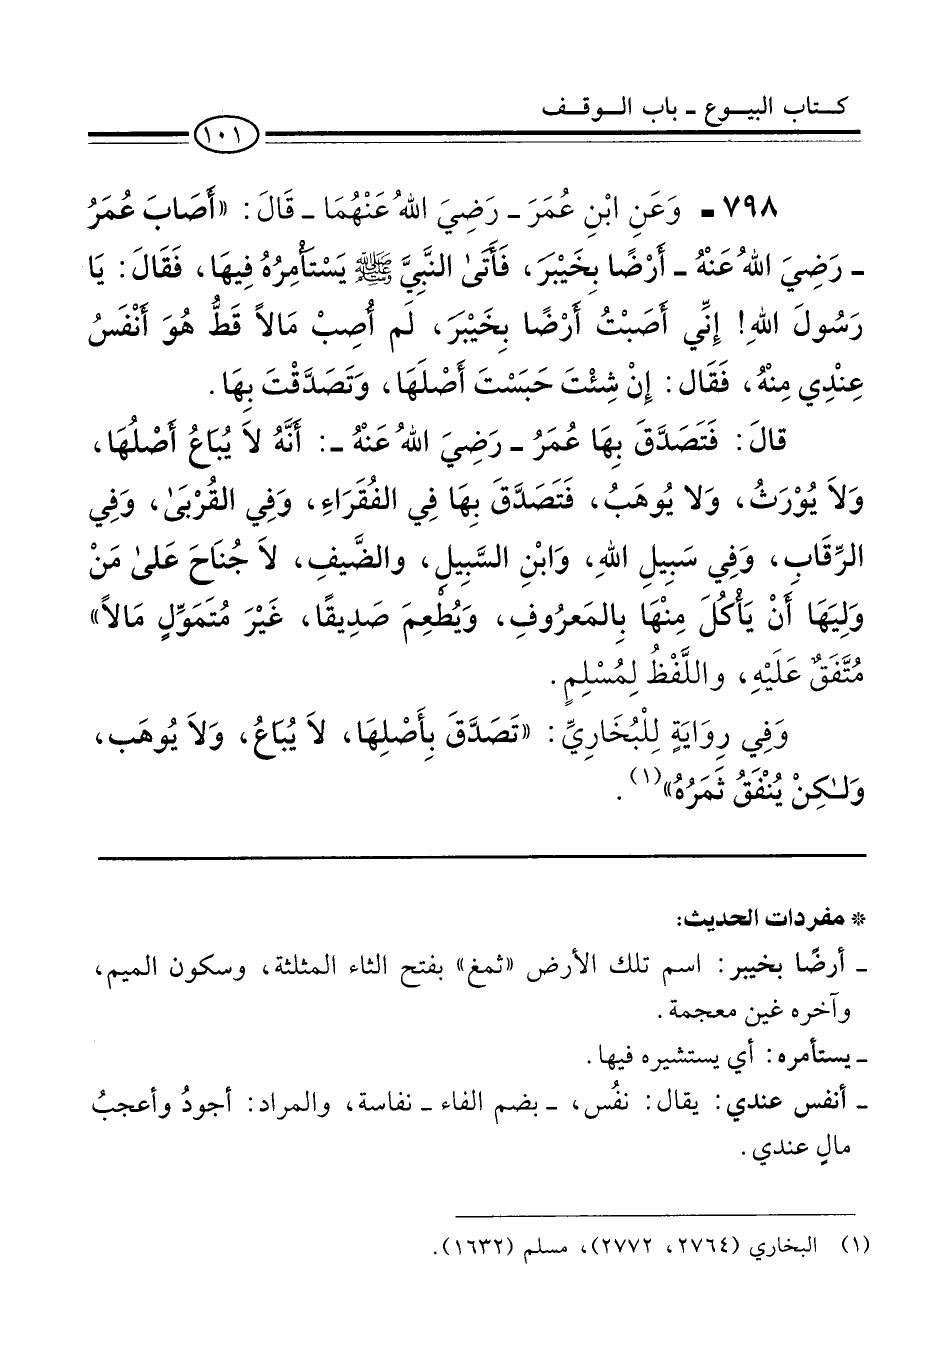 كتاب البيوع - باب الوقف
١٠١
٧٩٨ - وَعَنِ ابْنِ عُمَرَ - رَضِيَ اللهُ عَنْهُمَا - قَالَ: «أَصَابَ عُمَرُ
- رَضِيَ اللهُ عَنْهُ - أَرْضًا بِخَيْبَرَ، فَأَتَىٰ النَّبِيَّ ﷺ يَسْتَأْمِرُهُ فِيهَا، فَقَالَ: يَا
رَسُولَ اللهِ! إِنِّي أَصَبْتُ أَرْضًا بِخَيْبَرَ، لَم أُصِبْ مَالاً قَطُّ هُوَ أَنْفَسُ
عِنْدِي مِنْهُ، فَقَال: إِنْ شِئْتَ حَبَسْتَ أَصْلَهَا، وَتَصَدَّقْتَ بِهَا.
قالَ: فَتَصَدَّقَ بِهَا عُمَرُ - رَضِيَ اللهُ عَنْهُ -: أَنَّهُ لاَ يُبَاعُ أَصْلُهَا،
وَلاَ يُوْرَثُ، وَلا يُوهَبُ، فَتَصَدَّقَ بِهَا فِي الفُقَرَاءِ، وَفِي القُرْبَىٰ، وَفِي
الرِّقَابِ، وَفِي سَبِيلِ اللهِ، وَابْنِ السَّبِيلِ، والضَّيفِ، لاَ جُنَاحَ عَلىٰ مَنْ
وَلِيَهَا أَنْ يَأْكُلَ مِنْهَا بِالمَعرُوفِ، وَيُطْعِمَ صَدِيقًا، غَيْرَ مُتَمَوِّلٍ مَالاً»
مُتَّفَقٌ عَلَيْهِ، واللَّفْظُ لِمُسْلِمٍ.
وَفِي رِوَايَةٍ لِلْبُخَارِيِّ: «تَصَدَّقَ بِأَصْلِهَا، لاَ يُبَاعُ، وَلاَ يُوهَب،
وَلـٰكِنْ يُنْفَقُ ثَمَرُهُ»(١).
* مفردات الحديث:
- أرضًا بخيبر: اسم تلك الأرض «ثمغ» بفتح الثاء المثلثة، وسكون الميم،
وآخره غين معجمة.
- يستأمره: أي يستشيره فيها.
- أنفس عندي: يقال: نفُس، - بضم الفاء - نفاسة، والمراد: أجودُ وأعجبُ
مالٍ عندي.
(١) البخاري (٢٧٦٤، ٢٧٧٢)، مسلم (١٦٣٢).